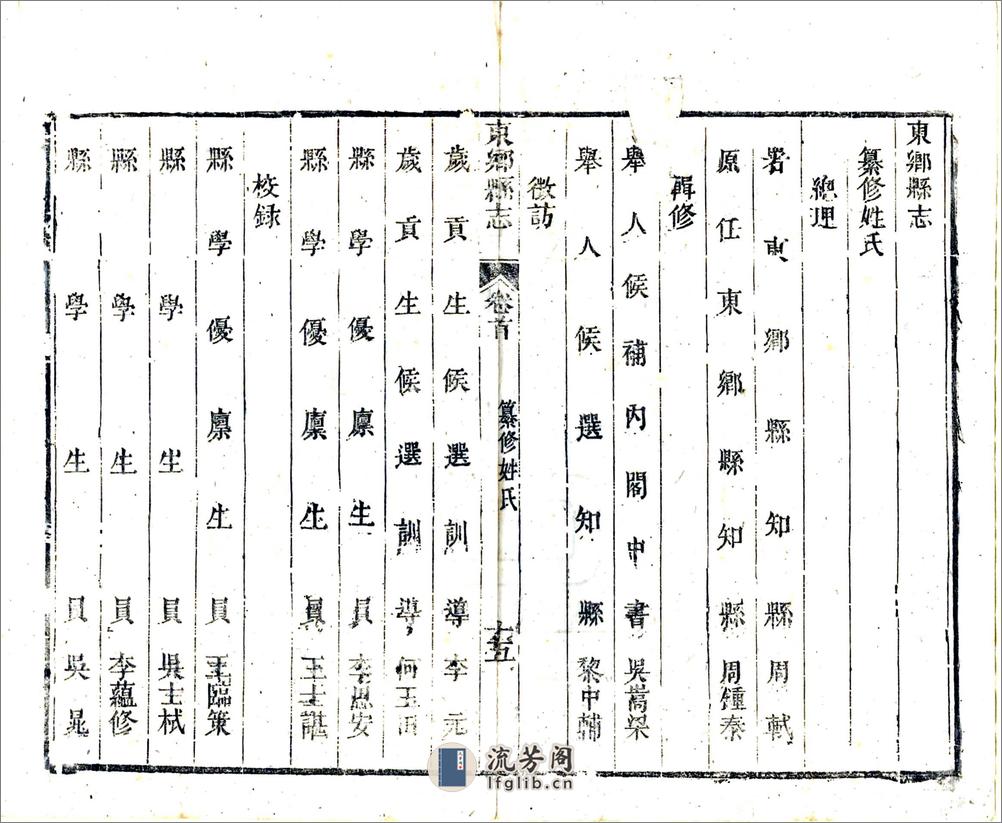 東鄉縣志
纂修姓氏
總理
署東鄉縣知縣周軾
原任東鄉縣知縣周鍾泰
輯修
舉人候補內閣中書吳嵩梁
舉人候選知縣黎中輔
徵訪
東鄉縣志 卷首 纂修姓氏 十五
歲貢生候選訓導李元
歲貢生候選訓導何玉田
縣學優廩生員李思安
縣學優廩生員王士諶
校録
縣學優廩生員王臨策
縣學生員吳士栻
縣學生員李蘊修
縣學生員吳晁
流芳阁
lfglib.cn